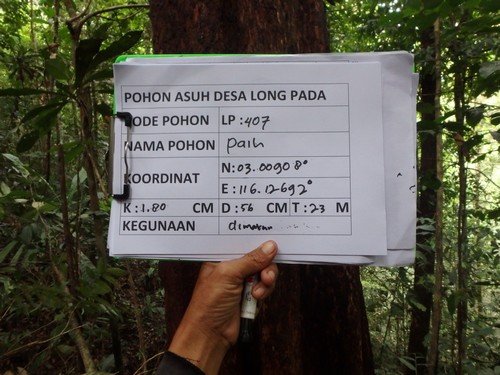 POHON ASUH DESA LONG PADA
KODE POHON LP : 407
NAMA POHON Paih
KOORDINAT N : 03.00908°
E : 116.12692°
K : 1.80 CM D : 56 CM T : 23 M
KEGUNAAN